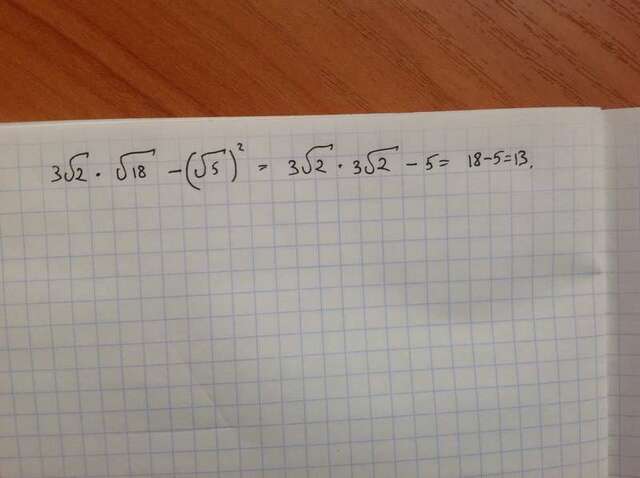 3√2 · √18 - (√5)² = 3√2 · 3√2 - 5 = 18-5=13.